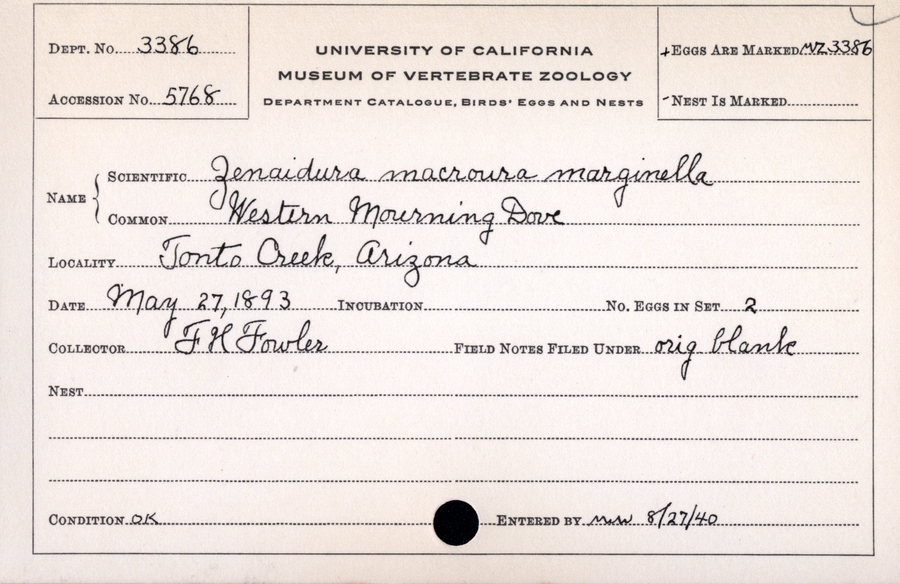 DEPT. No. 3386
ACCESSION No. 5768
UNIVERSITY OF CALIFORNIA
MUSEUM OF VERTEBRATE ZOOLOGY
DEPARTMENT CATALOGUE, BIRDS' EGGS AND NESTS
+EGGS ARE MARKED MVZ3386
-NEST IS MARKED
NAME
SCIENTIFIC Zenaidura macroura marginella
COMMON Western Mourning Dove
LOCALITY Tonto Creek, Arizona
DATE May 27, 1893 INCUBATION No. EGGS IN SET 2
COLLECTOR F H Fowler FIELD NOTES FILED UNDER orig blank
NEST
CONDITION OK ENTERED BY 8/27/40